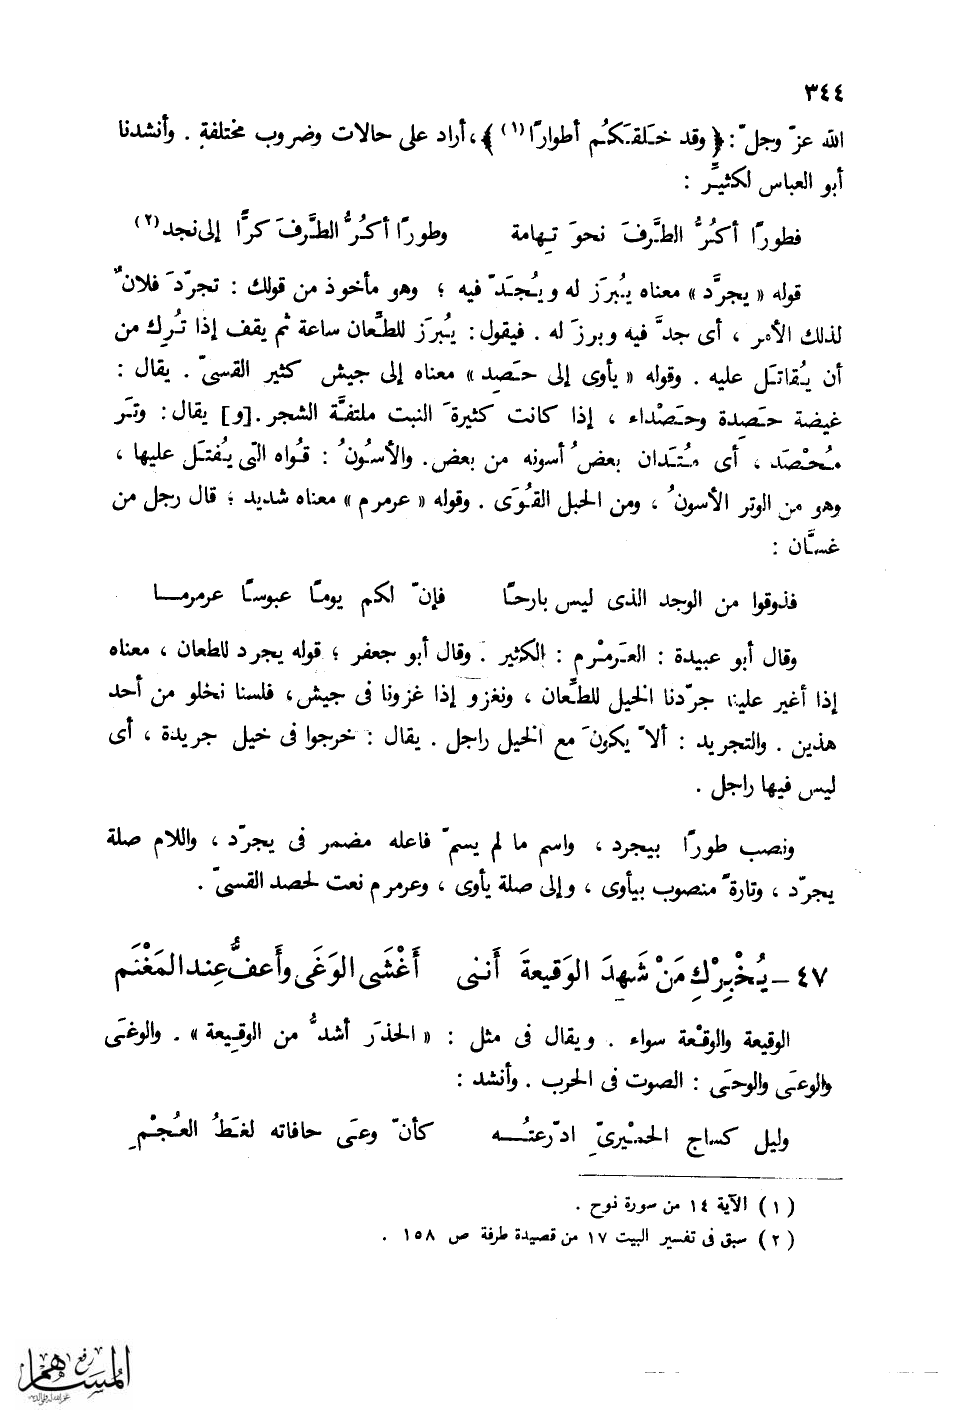 ٣٤٤
الله عزّ وجلّ: ﴿ وقد خَلَقَكُم أطوارًا(١) ﴾، أراد على حالات وضروب مختلفةٍ . وأنشدنا
أبو العباس لكثيِّر :
فطورًا أكُرُّ الطَّرفَ نحوَ تِهامة وطورًا أكُرُّ الطَّرفَ كرًّا إلى نجد(٢)
قوله « يجرَّد » معناه يُبرَز له ويُجَدّ فيه ؛ وهو مأخوذ من قولك : تجرّدَ فلانٌ
لذلك الأمر ، أى جدَّ فيه وبرزَ له . فيقول : يُبرَز للطِّعان ساعة ثم يقف إذا تُرِك من
أن يُقاتَل عليه . وقوله « يأوى إلى حَصِد » معناه إلى جيش كثير القسىّ . يقال :
غيضة حَصِدة وحَصْداء ، إذا كانت كثيرةَ النبت ملتفَّة الشجر . [و] يقال : وتَر
مُحْصَد ، أى مُتَدان بعضُ أسونه من بعض . والأسُونُ : قُواه التى يُفتَل عليها ،
وهو من الوتر الأسونُ ، ومن الحبل القُوَى . وقوله « عرمرم » معناه شديد ؛ قال رجل من
غسَّان :
فذوقوا من الوجد الذى ليس بارحًا فإنّ لكم يومًا عبوسًا عرمرمـا
وقال أبو عبيدة : العَرمْرم : الكثير . وقال أبو جعفر ؛ قوله يجرد للطعان ، معناه
إذا أغير علينا جرّدنا الخيل للطِّعان ، ونغزو إذا غزونا فى جيش ، فلسنا نخلو من أحد
هذين . والتجريد : ألاّ يكونَ مع الخيل راجل . يقال : خرجوا فى خيل جريدة ، أى
ليس فيها راجل .
ونصب طورًا بيجرد ، واسم ما لم يسمّ فاعله مضمر فى يجرّد ، واللام صلة
يجرّد ، وتارةً منصوب بيأوى ، وإلى صلة يأوى ، وعرمرم نعت لحصد القسىّ .
٤٧ – يُخْبِرْكِ مَنْ شَهِدَ الوَقيعةَ أَننى أَغْشَى الوَغَى وأَعفُّ عِند المَغْنَم
الوقيعة والوقْعة سواء . ويقال فى مثل : « الحذَر أشدُّ من الوقِيعة » . والوغَى
والوعَى والوحَى : الصوت فى الحرب . وأنشد :
وليل كساج الحمْيرىِّ ادّرعتُـه كأنّ وعَى حافاته لغَطُ العُجْمِ
( ١ ) الآية ١٤ من سورة نوح .
( ٢ ) سبق فى تفسير البيت ١٧ من قصيدة طرفة ص ١٥٨ .